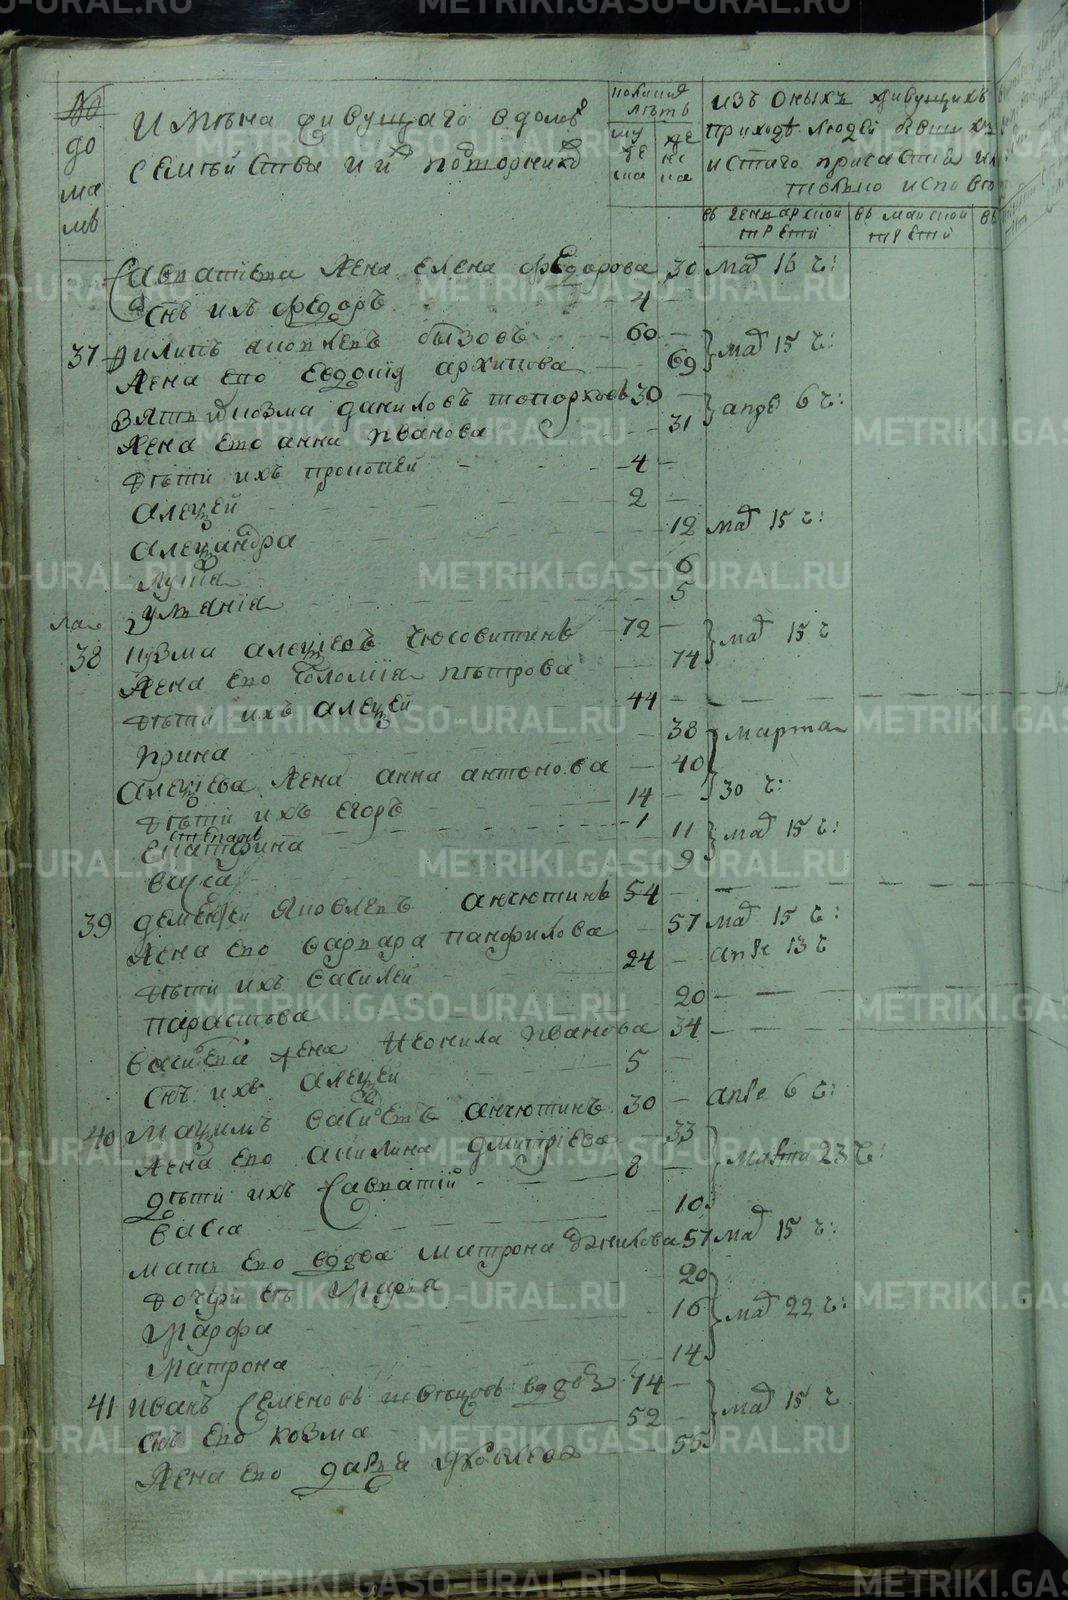 № домамъ
Имѣна живущаго вдомѣ семѣйства и ихъ подворники
показанїе лѣтъ
муже ска
женска
изъ оныхъ живущихъ
приходѣ людей
истаго причастїя
только испов
въ генварской трети
въ майской трети
въ
Савватїева жена елена федорова 30 маѣ 16 ч:
Снъ ихъ федоръ 4
37 Филипъ бызовъ 60
маѣ 15 ч:
Жена его евдокїя архипова 69
Зять козма даниловъ топорковъ 30
апрѣ 6 ч:
Жена его анна иванова 31
дѣти ихъ прокопей 4
алеѯей 2
алеѯандра 12 маѣ 15 ч:
лукїа 6
улїанїа 5
38 кузма алеѯѣевъ чюсовитинъ 72
маѣ 15 ч
Жена его соломїа пѣтрова 74
дѣти ихъ алеѯей 44
ирина 38
марта
алеѯѣева жена анна антонова 40
30 ч:
дѣти ихъ егоръ 14
степанъ 1
екатерина 11
маѣ 15 ч:
васса 9
39 дементей яковлевъ анчютинъ 54
Жена его варвара панфилова 57 маѣ 15 ч:
дѣти ихъ василей 24 апре 13 ч
параскева 20
васильева жена неонила иванова 34
Снъ ихъ алеѯей 5
40 маѯимъ васильевъ анчютинъ 30 апре 6 ч:
Жена его акилина дмитрїева 33
марта 23 ч:
дѣти ихъ савватїй 8
васса 10
мать его вдова матрона данилова 57 маѣ 15 ч:
дочери ея марїя 20
марфа 16
маѣ 22 ч:
матрона 14
41 иванъ семеновъ шевѣцовъ вдовъ 74
маѣ 15 ч
Снъ его козма 52
Жена его дарья яковлева 55
METRIKI.GASO-URAL.RU